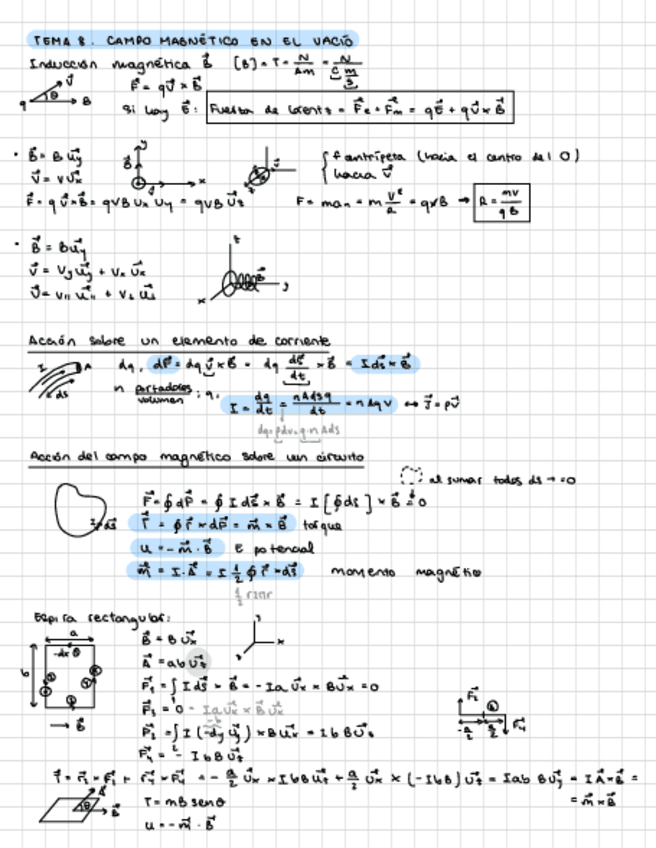 TEMA 8. CAMPO MAGNÉTICO EN EL VACÍO
Inducción magnética B⃗ [B] = T = N/Am = N/(C m/s)
q θ v⃗ B⃗
F⃗ = q v⃗ × B⃗
Si hay E⃗: Fuerza de Lorentz = F⃗e + F⃗m = qE⃗ + q v⃗ × B⃗
• B⃗ = B u⃗y
v⃗ = v u⃗x
f centrípeta (hacia el centro del O)
hacia v⃗
F⃗ = q v⃗ × B⃗ = qvB ux uy = qvB u⃗z
F = m an = m v²/R = qvB → R = mv/qB
• B⃗ = B u⃗y
v⃗ = vy u⃗y + vx u⃗x
v⃗ = v|| u⃗|| + v⊥ u⃗⊥
Acción sobre un elemento de corriente
I A ds
dq, dF⃗ = dq v⃗ × B⃗ = dq ds⃗/dt × B⃗ = I ds⃗ × B⃗
n portadores/volumen ; q,
I = dq/dt = nAdsq/dt = nAqv ↔ J⃗ = ρv⃗
dq = ρdv = q·n Ads
Acción del campo magnético sobre un circuito
al sumar todos ds → = 0
I ds⃗
F⃗ = ∮ dF⃗ = ∮ I ds⃗ × B⃗ = I [∮ ds⃗] × B⃗ = 0
τ⃗ = ∮ r⃗ × dF⃗ = m⃗ × B⃗ torque
u = - m⃗ · B⃗ E potencial
m⃗ = I·A⃗ = I 1/2 ∮ r⃗ × ds⃗ momento magnético
1/2 r2πr
Espira rectangular:
a
b
B⃗ = B u⃗x
A⃗ = ab u⃗z
F⃗1 = ∫ I ds⃗ × B⃗ = - Ia u⃗x × B u⃗x = 0
F⃗3 = 0 - Ia u⃗x × B u⃗x
F⃗2 = ∫ I (-dy u⃗y) × B u⃗x = I b B u⃗z
F⃗4 = - I b B u⃗z
τ⃗ = r⃗2 × F⃗2 + r⃗4 × F⃗4 = - a/2 u⃗x × I b B u⃗z + a/2 u⃗x × (- I b B) u⃗z = I ab B u⃗y = I A⃗ × B⃗ =
= m⃗ × B⃗
τ = mB senθ
u = - m⃗ · B⃗